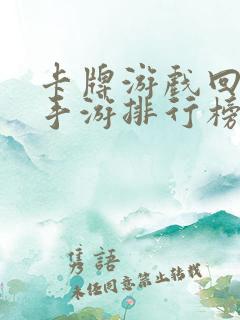 卡牌游戏回
手游排行榜
隽語
未经同意禁止转载